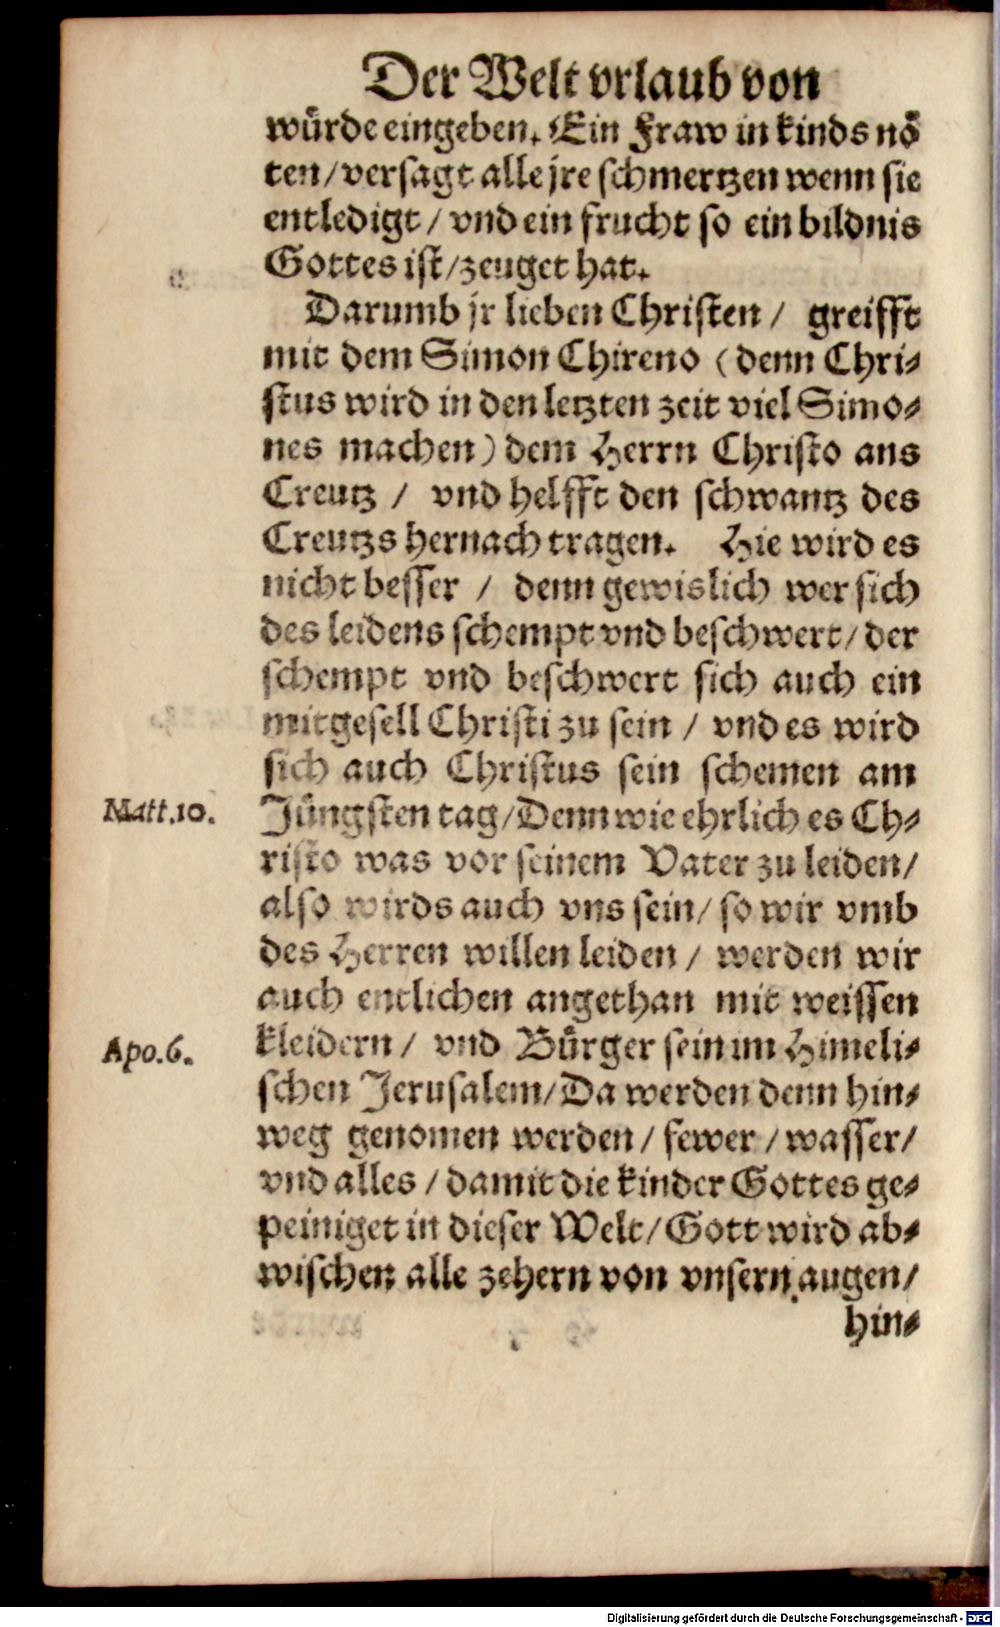 Der Welt vrlaub von
würde eingeben. Ein Fraw in kinds nö
ten / versagt alle jre schmertzen wenn sie
entledigt / vnd ein frucht so ein bildnis
Gottes ist / zeuget hat.
Darumb jr lieben Christen / greifft
mit dem Simon Chireno (denn Chri-
stus wird in den letzten zeit viel Simo-
nes machen) dem Herrn Christo ans
Creutz / vnd helfft den schwantz des
Creutzs hernach tragen. Hie wird es
nicht besser / denn gewislich wer sich
des leidens schempt vnd beschwert / der
schempt vnd beschwert sich auch ein
mitgesell Christi zu sein / vnd es wird
sich auch Christus sein schemen am
Matt.10. Jüngsten tag / Denn wie ehrlich es Ch-
risto was vor seinem Vater zu leiden /
also wirds auch vns sein / so wir vmb
des Herren willen leiden / werden wir
auch entlichen angethan mit weissen
Apo.6. kleidern / vnd Bürger sein im Himeli-
schen Jerusalem / Da werden denn hin-
weg genomen werden / fewer / wasser /
vnd alles / damit die kinder Gottes ge-
peiniget in dieser Welt / Gott wird ab-
wischen alle zehern von vnsern augen /
hin-
Digitalisierung gefördert durch die Deutsche Forschungsgemeinschaft - DFG